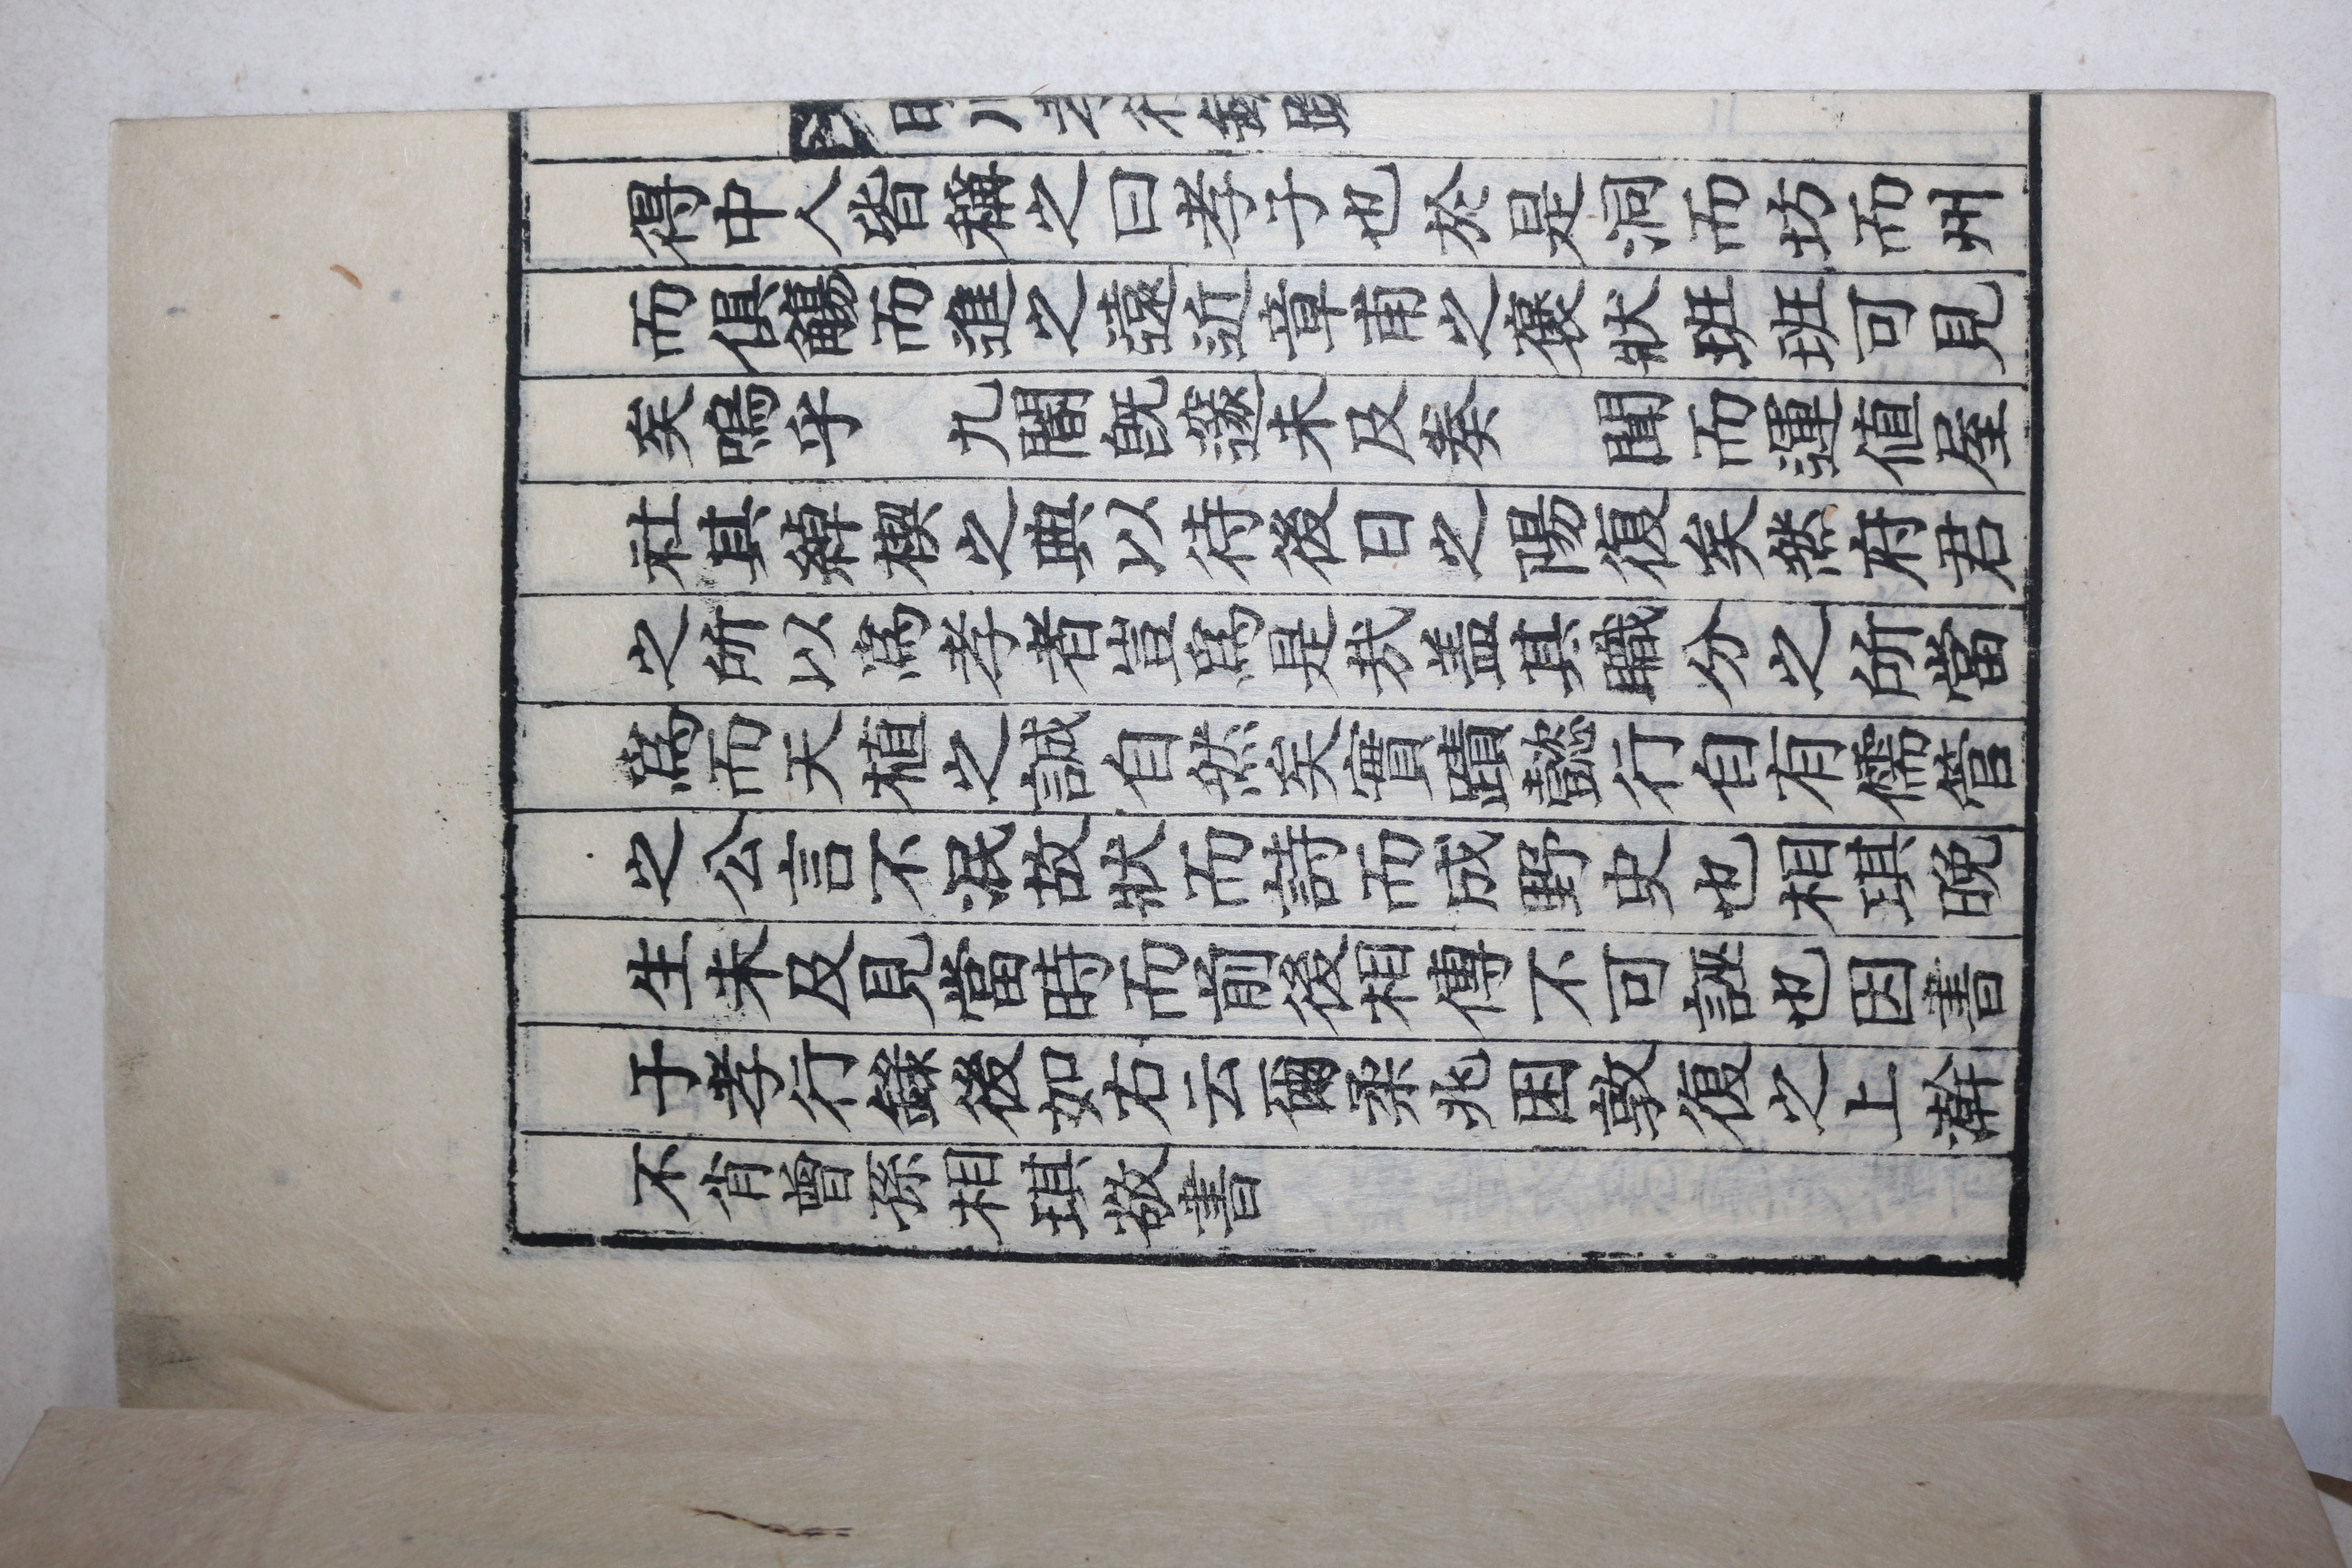 得中人皆稱之曰孝子也於是洞而坊而州
而俱觴而進之遠近章甫之褒狀班班可見
矣嗚乎 九閽旣邃未及奏 聞而運値屋
社其綽楔之典以待後日之陽復矣然府君
之所以爲孝者豈爲是哉盖其職分之所當
爲而天植之誠自然矣實蹟懿行自有儒管
之公言不泯故狀而詩而成野史也相琪晚
生未及見當時而前後相傳不可誣也因書
于孝行錄後如右云爾柔兆困敦復之上澣
不肖曾孫相琪敬書